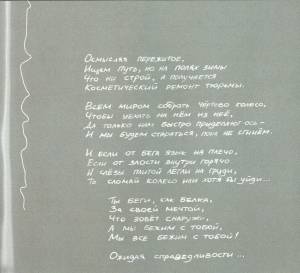 Осмысляя пережитое,
Ищем путь, но на полях зимы
Что ни строй, а получается
Косметический ремонт тюрьмы.
Всем миром собрать чёртово колесо,
Чтобы уехать на нём из неё,
Да только нам быстро приделают ось-
И мы будем стараться, пока не сгинем.
И если от бега язык на плечо,
Если от злости внутри горячо
И слёзы плитой легли на груди,
То сломай колесо или хотя бы уйди...
Ты беги, как белка,
За своей мечтой,
Что зовёт снаружи,
А мы бежим с тобой,
Мы все бежим с тобой!
Ожидая справедливости...